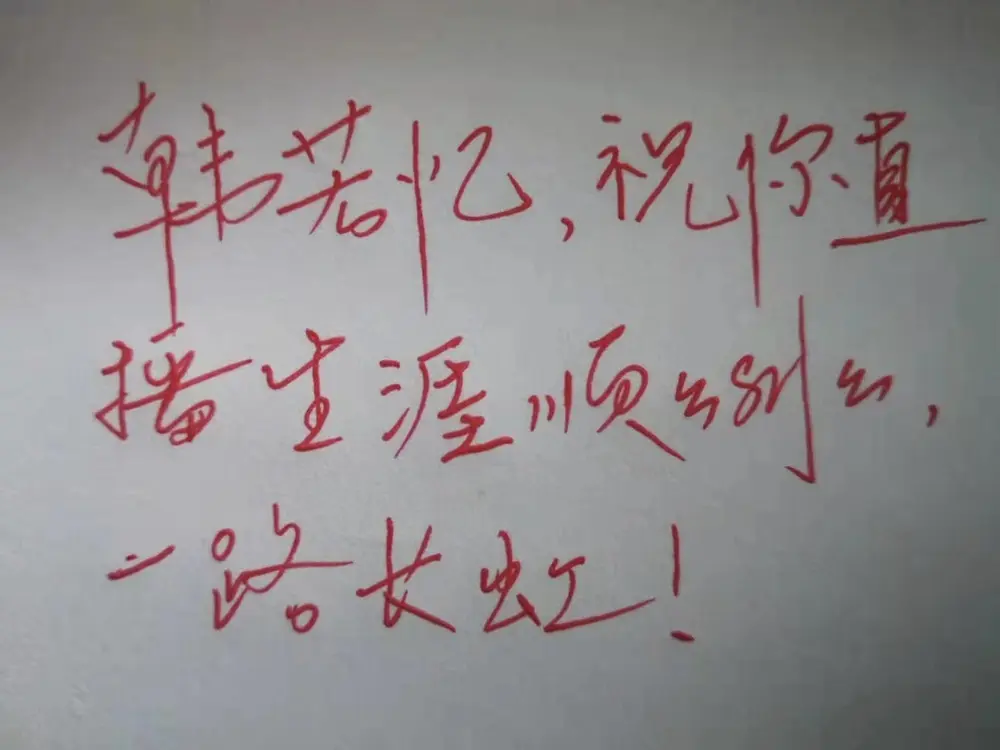 韩若忆，祝你直
播生涯顺々利々，
一路长虹！